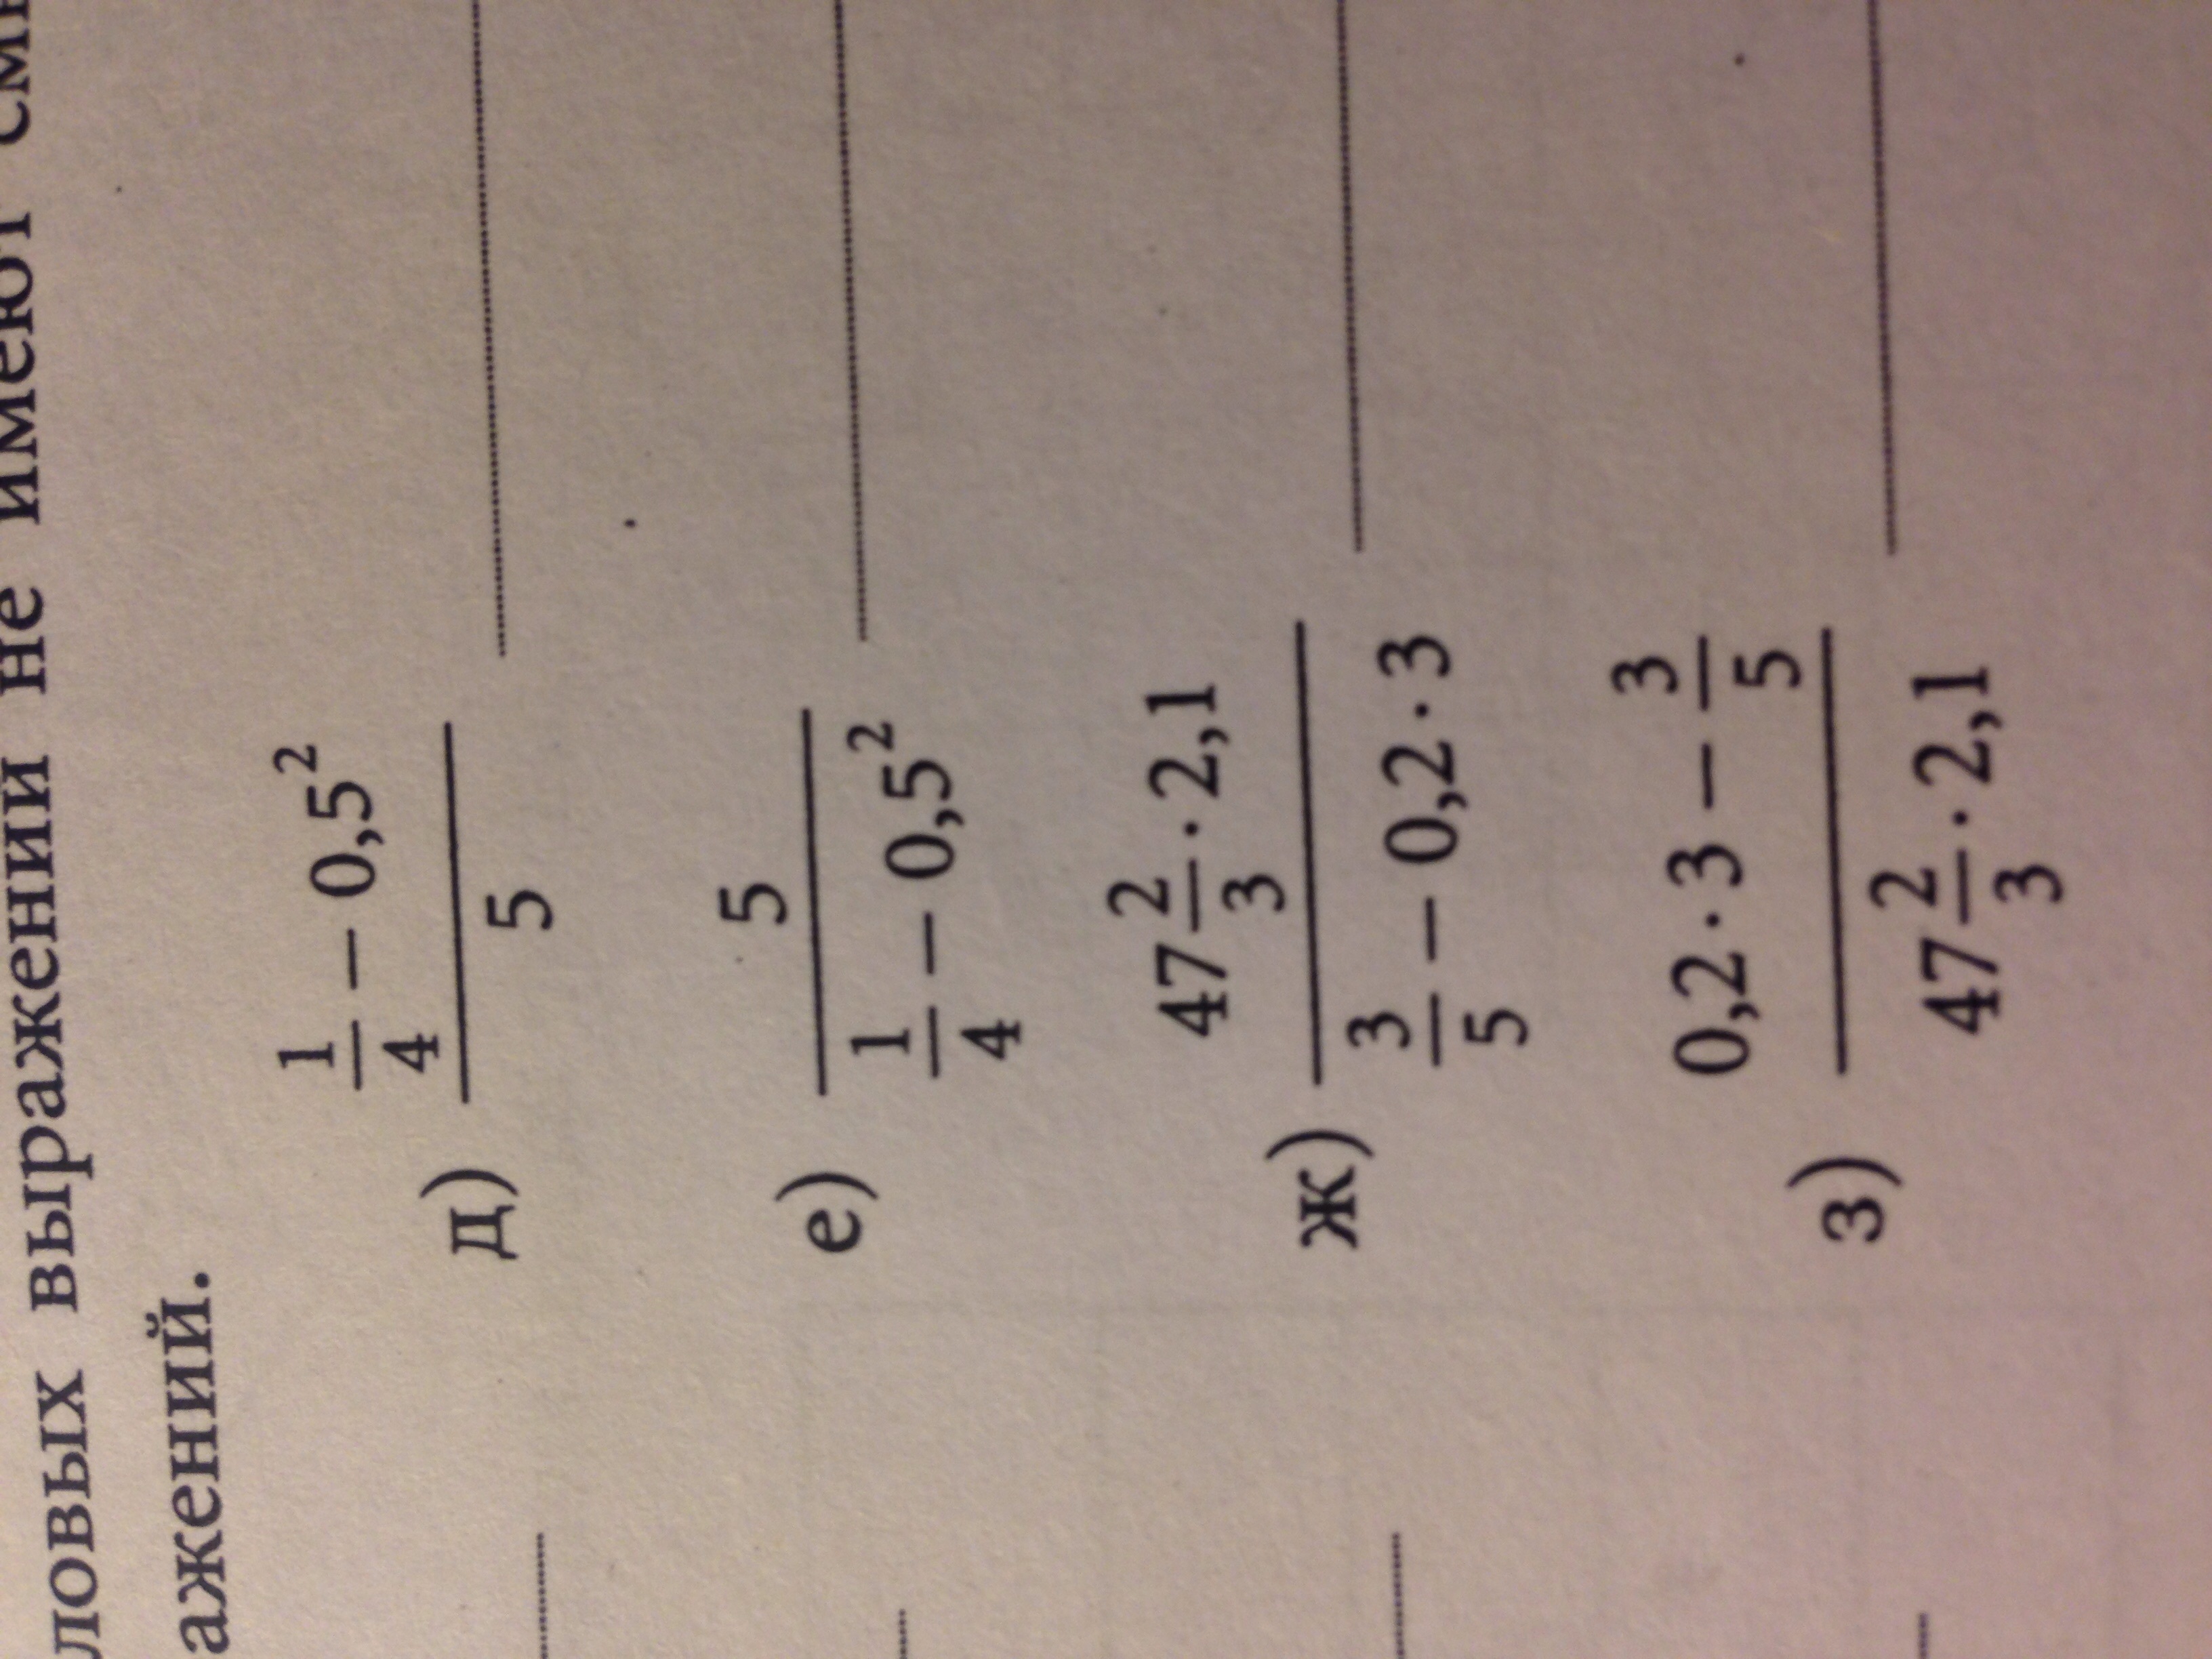 выражений не имеют
д) \frac{\frac{1}{4} - 0,5^2}{5}
е) \frac{5}{\frac{1}{4} - 0,5^2}
ж) \frac{47\frac{2}{3} \cdot 2,1}{\frac{3}{5} - 0,2 \cdot 3}
з) \frac{0,2 \cdot 3 - \frac{3}{5}}{47\frac{2}{3} \cdot 2,1}